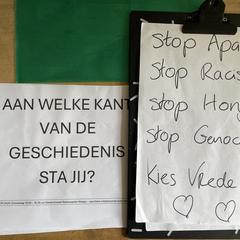 AAN WELKE KANT
VAN DE
GESCHIEDENIS
STA JIJ?
Stop Apa
Stop Racis
Stop Hon
Stop Genoc
Kies Vrede